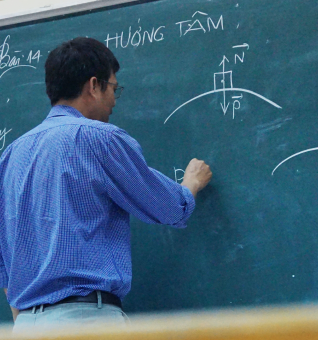 Bài 14
HƯỚNG TÂM
N
P
P